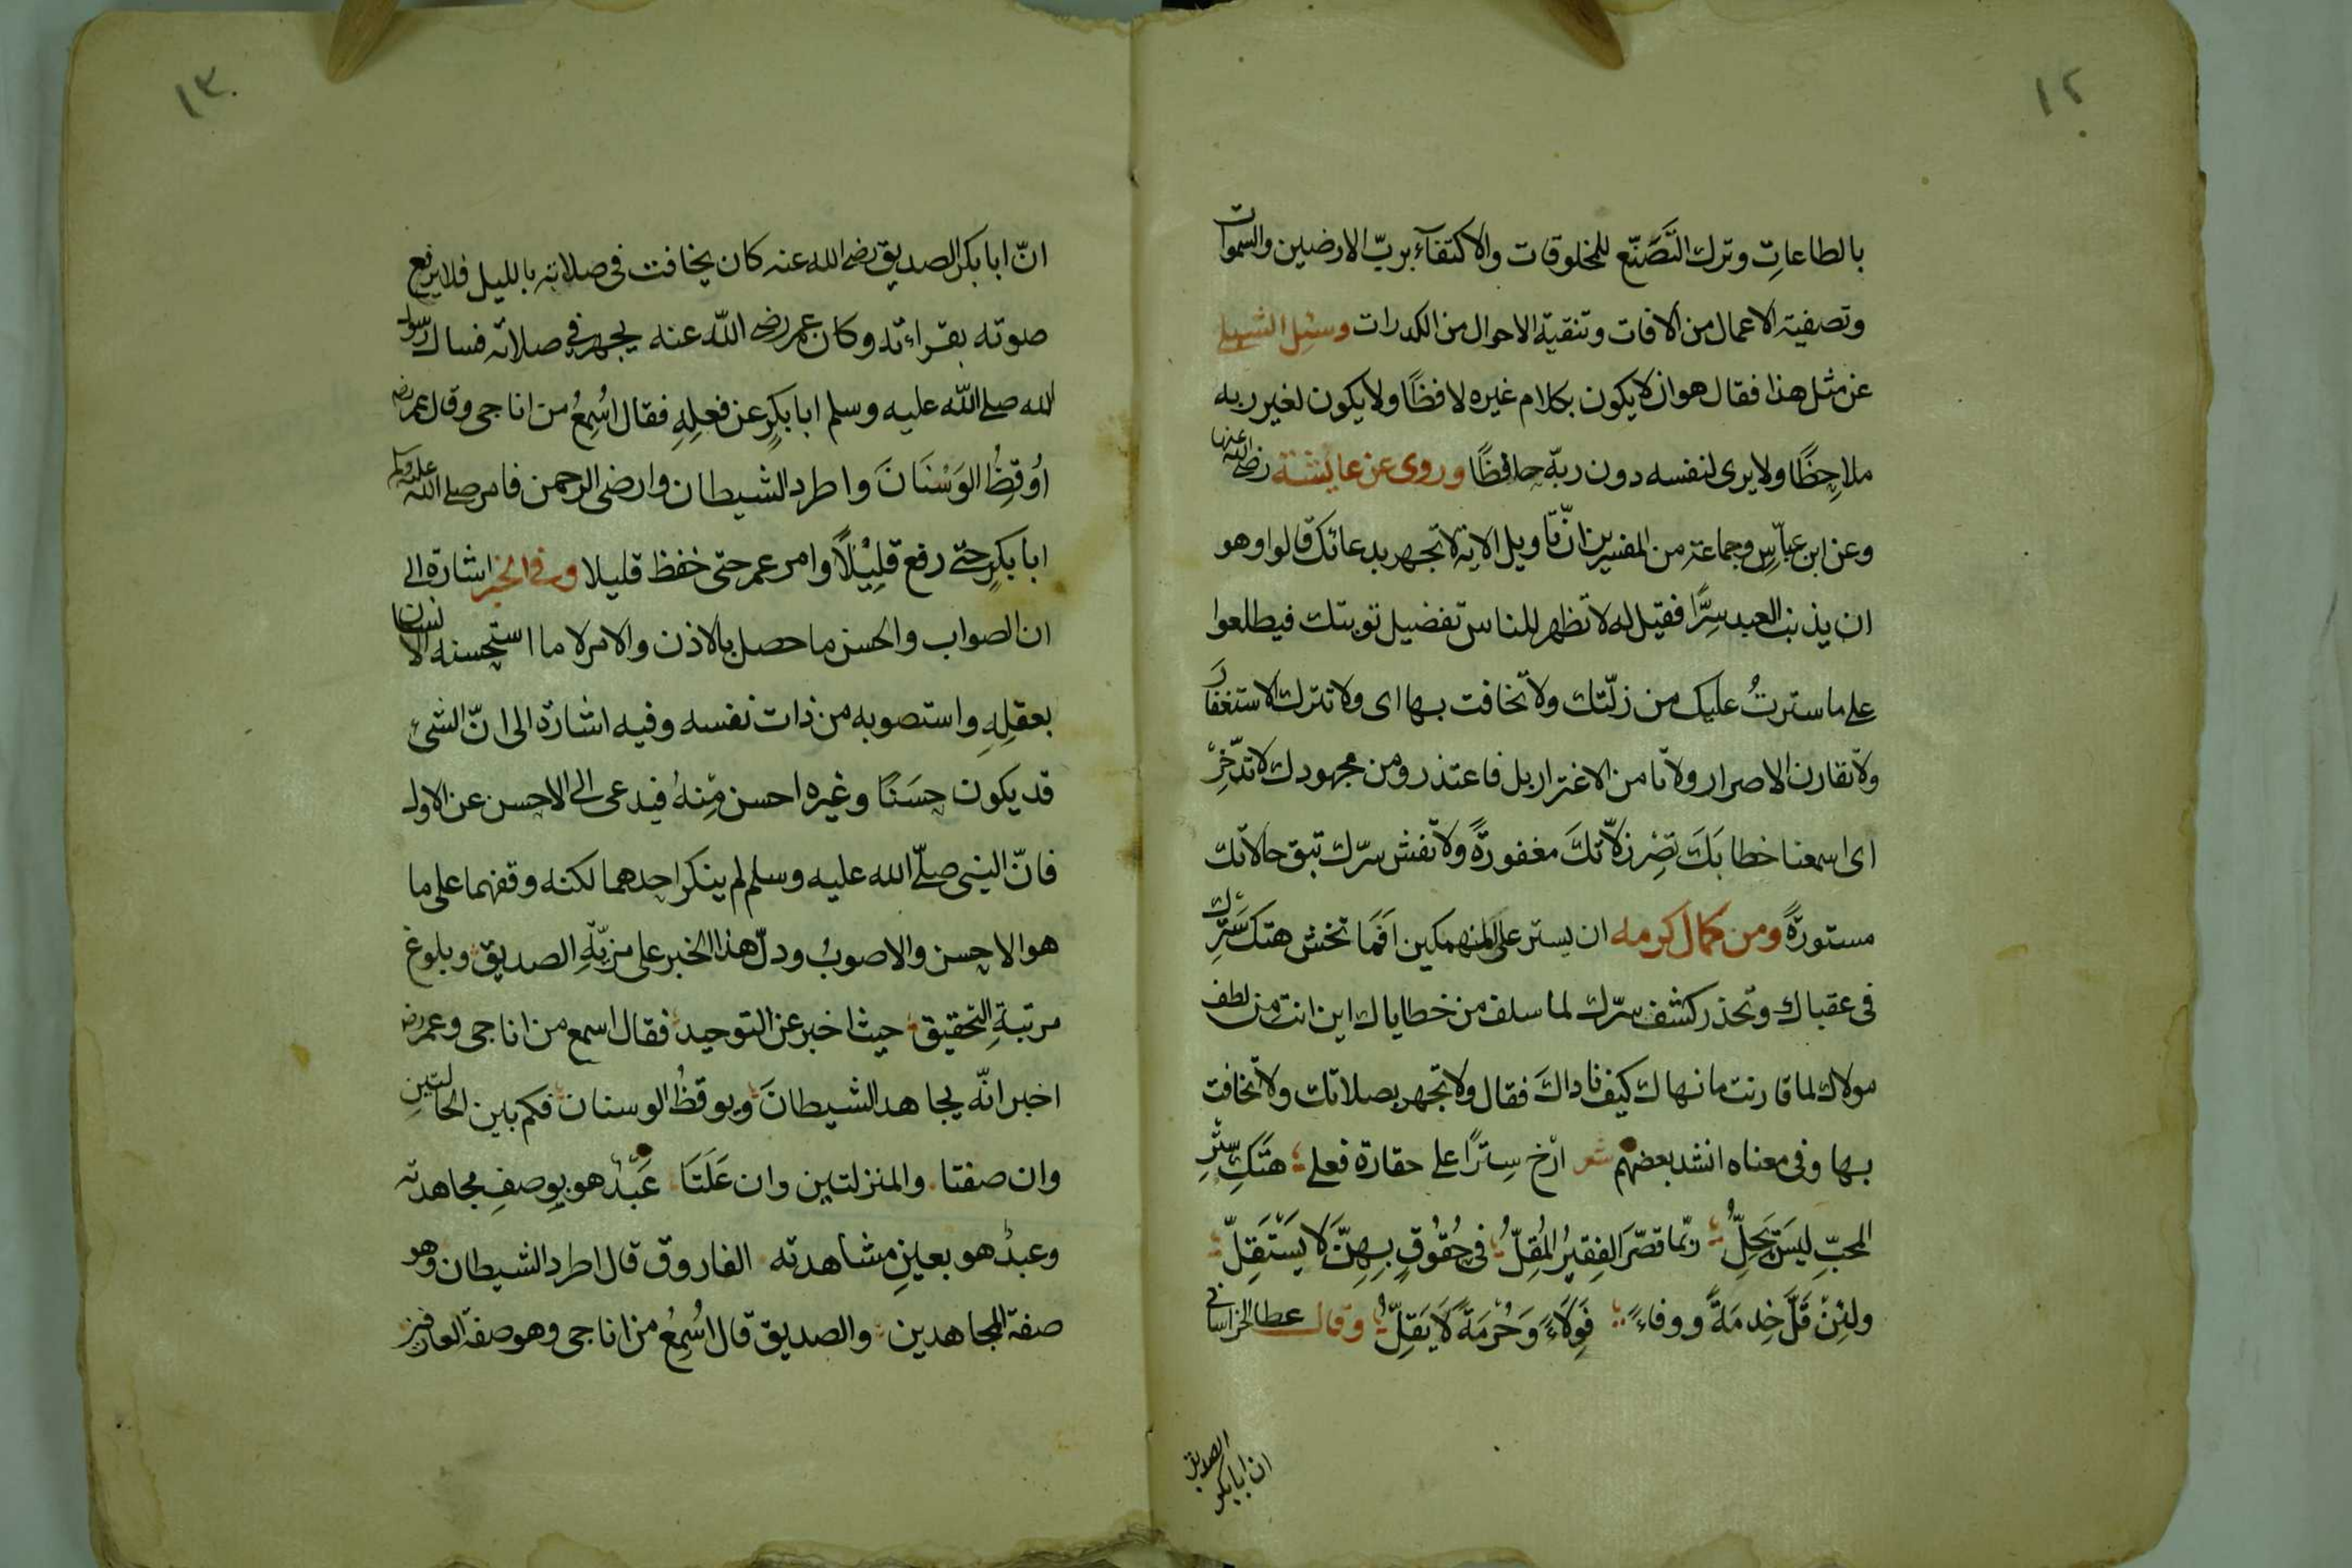 ١٢
بالطاعاتِ وترك التَّصَنّع للمخلوقات والاكتفآء بربّ الارضين والسموات
وتصفية الاعمال من الافات وتنقية الاحوال من الكدرات وسئِل الشبلي
عن مثل هذا فقال هو ان لا يكون بكلام غيره لافظًا ولا يكون لغير ربه
ملاحِظًا ولا يرى لنفسه دون ربّه حافظًا وروى عن عائشة رضي الله عنها
وعن ابن عبّاسٍ وجماعة من المفسرين انّ تاويل الاية لا تجهر بدعائك قالوا وهو
ان يذنب العبد سِرًّا فقيل له لا تظهر للناس تفضيل توبتك فيطلعوا
على ما سترتُ عليك من زلّتك ولا تخافت بها اى ولا تترك الاستغفارَ
ولا تقارن الاصرار ولا تامن الاغترار بل فاعتذر ومن مجهودك لا تدّخِرْ
اى اسمعنا خطابَكَ تصِرْ زلّاتكَ مغفورةً ولا تفش سرّك تبق حالاتك
مستورةً ومن كمال كرمه ان يستر على المنهمكين اَفَمَا تخش هتك سَتْرِك
فى عقباك وتحذر كشف سرّك لما سلف من خطاياك اين انت من لطف
مولاك لما قارنت ما نهاك كيف ناداكَ فقال ولا تجهر بصلاتك ولا تخافت
بها وفى معناه انشد بعضهم شعر ارْخِ سِترًا على حقارة فعلى ؛ هتَكِ سِتْرِ
المحبّ لَيسَ يَحِلُّ ؛ ربّما قصّرَ الفقيرُ المُقِلُّ ؛ فى حُقُوقٍ بِهِنّ لا يَسْتَقِلّ ؛
ولئِنْ قَلَّ خِدمَةً ووفاءً ؛ فَوِلَاءً وَحُرْمَةً لَا يَقِلُّ ؛ وقال عطا الخراسانى
ان ابابكر
الصديق
١٣
انّ ابا بكر الصديق رضى الله عنه كان يخافت فى صلاته بالليل فلا يرفع
صوته بقراءته وكان عمر رضى اللّه عنه يجهر فى صلاته فسال رسول
الله صلى اللّه عليه وسلم ابا بكرٍ عن فعلِهِ فقال اُسْمِعُ من اناجى وقال عمر رضه
اُوقِظُ الوَسْنَانَ واطرد الشيطان وارضى الرحمن فامر صلى اللّه عليه وسلم
ابا بكرٍ حتّى رفع قَلِيْلًا وامر عمر حتى خفظ قليلا وفى الخبر اشارة الى
ان الصواب والحسن ما حصل بالاذن والامر لا ما استحسنه الانسان
بعقلِهِ واستصوبه من ذات نفسه وفيه اشارة الى انّ الشئ
قد يكون حسَنًا وغيره احسن مِنهُ فيدعى الى الاحسن عن الاول
فانّ النبى صلّى الله عليه وسلم لم ينكر احدهما لكنه وقفهما على ما
هو الاحسن والاصوبُ ودلّ هذا الخبر على مزيّةِ الصديق ؛ وبلوغ
مرتبةِ التحقيق ؛ حيث اخبر عن التوحيد ؛ فقال اسمع من اناجى وعمر رضه
اخبر انّه يجاهد الشيطانَ ؛ ويوقظُ الوسنان ؛ فكم بين الحالتينِ
وان صفتا . والمنزلتين وان عَلَتَا . عَبْدٌ هو بِوصفِ مجاهدته
وعبدٌ هو بعينِ مشاهدته . الفاروق قال اطرد الشيطان وهو
صفة المجاهدين . والصديق قال اُسْمِعُ من اناجى وهو صفة العارفين